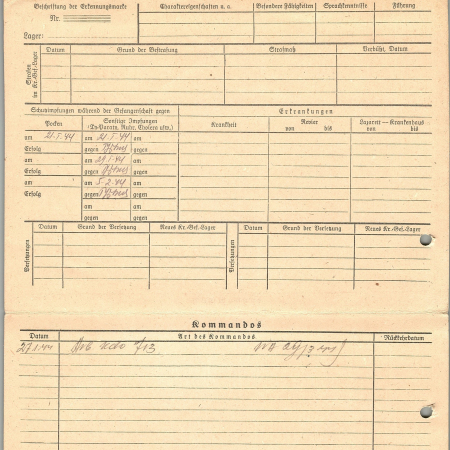 Beschriftung der Erkennungsmarke
Nr.
Lager:
Charaktereigenschaften u. a.
Besondere Fähigkeiten
Sprachkenntnisse
Führung
Strafen im Kr.-Gef.-Lager
Datum
Grund der Bestrafung
Strafmaß
Verbüßt, Datum
Schutzimpfungen während der Gefangenschaft gegen
Erkrankungen
Pocken
Sonstige Impfungen
(Ty-Paraty, Ruhr, Cholera usw.)
Krankheit
Revier
von bis
Lazarett – Krankenhaus
von bis
am 21.1.44 am 21.1.44 am
Erfolg gegen gegen
am am 29.1.44 am
Erfolg gegen gegen
am am 5.2.44 am
Erfolg gegen gegen
am am
gegen gegen
Versetzungen
Datum Grund der Versetzung Neues Kr.-Gef.-Lager
Versetzungen
Datum Grund der Versetzung Neues Kr.-Gef.-Lager
Kommandos
Datum Art des Kommandos Rückkehrdatum
27.1.44 Arb Kdo 713